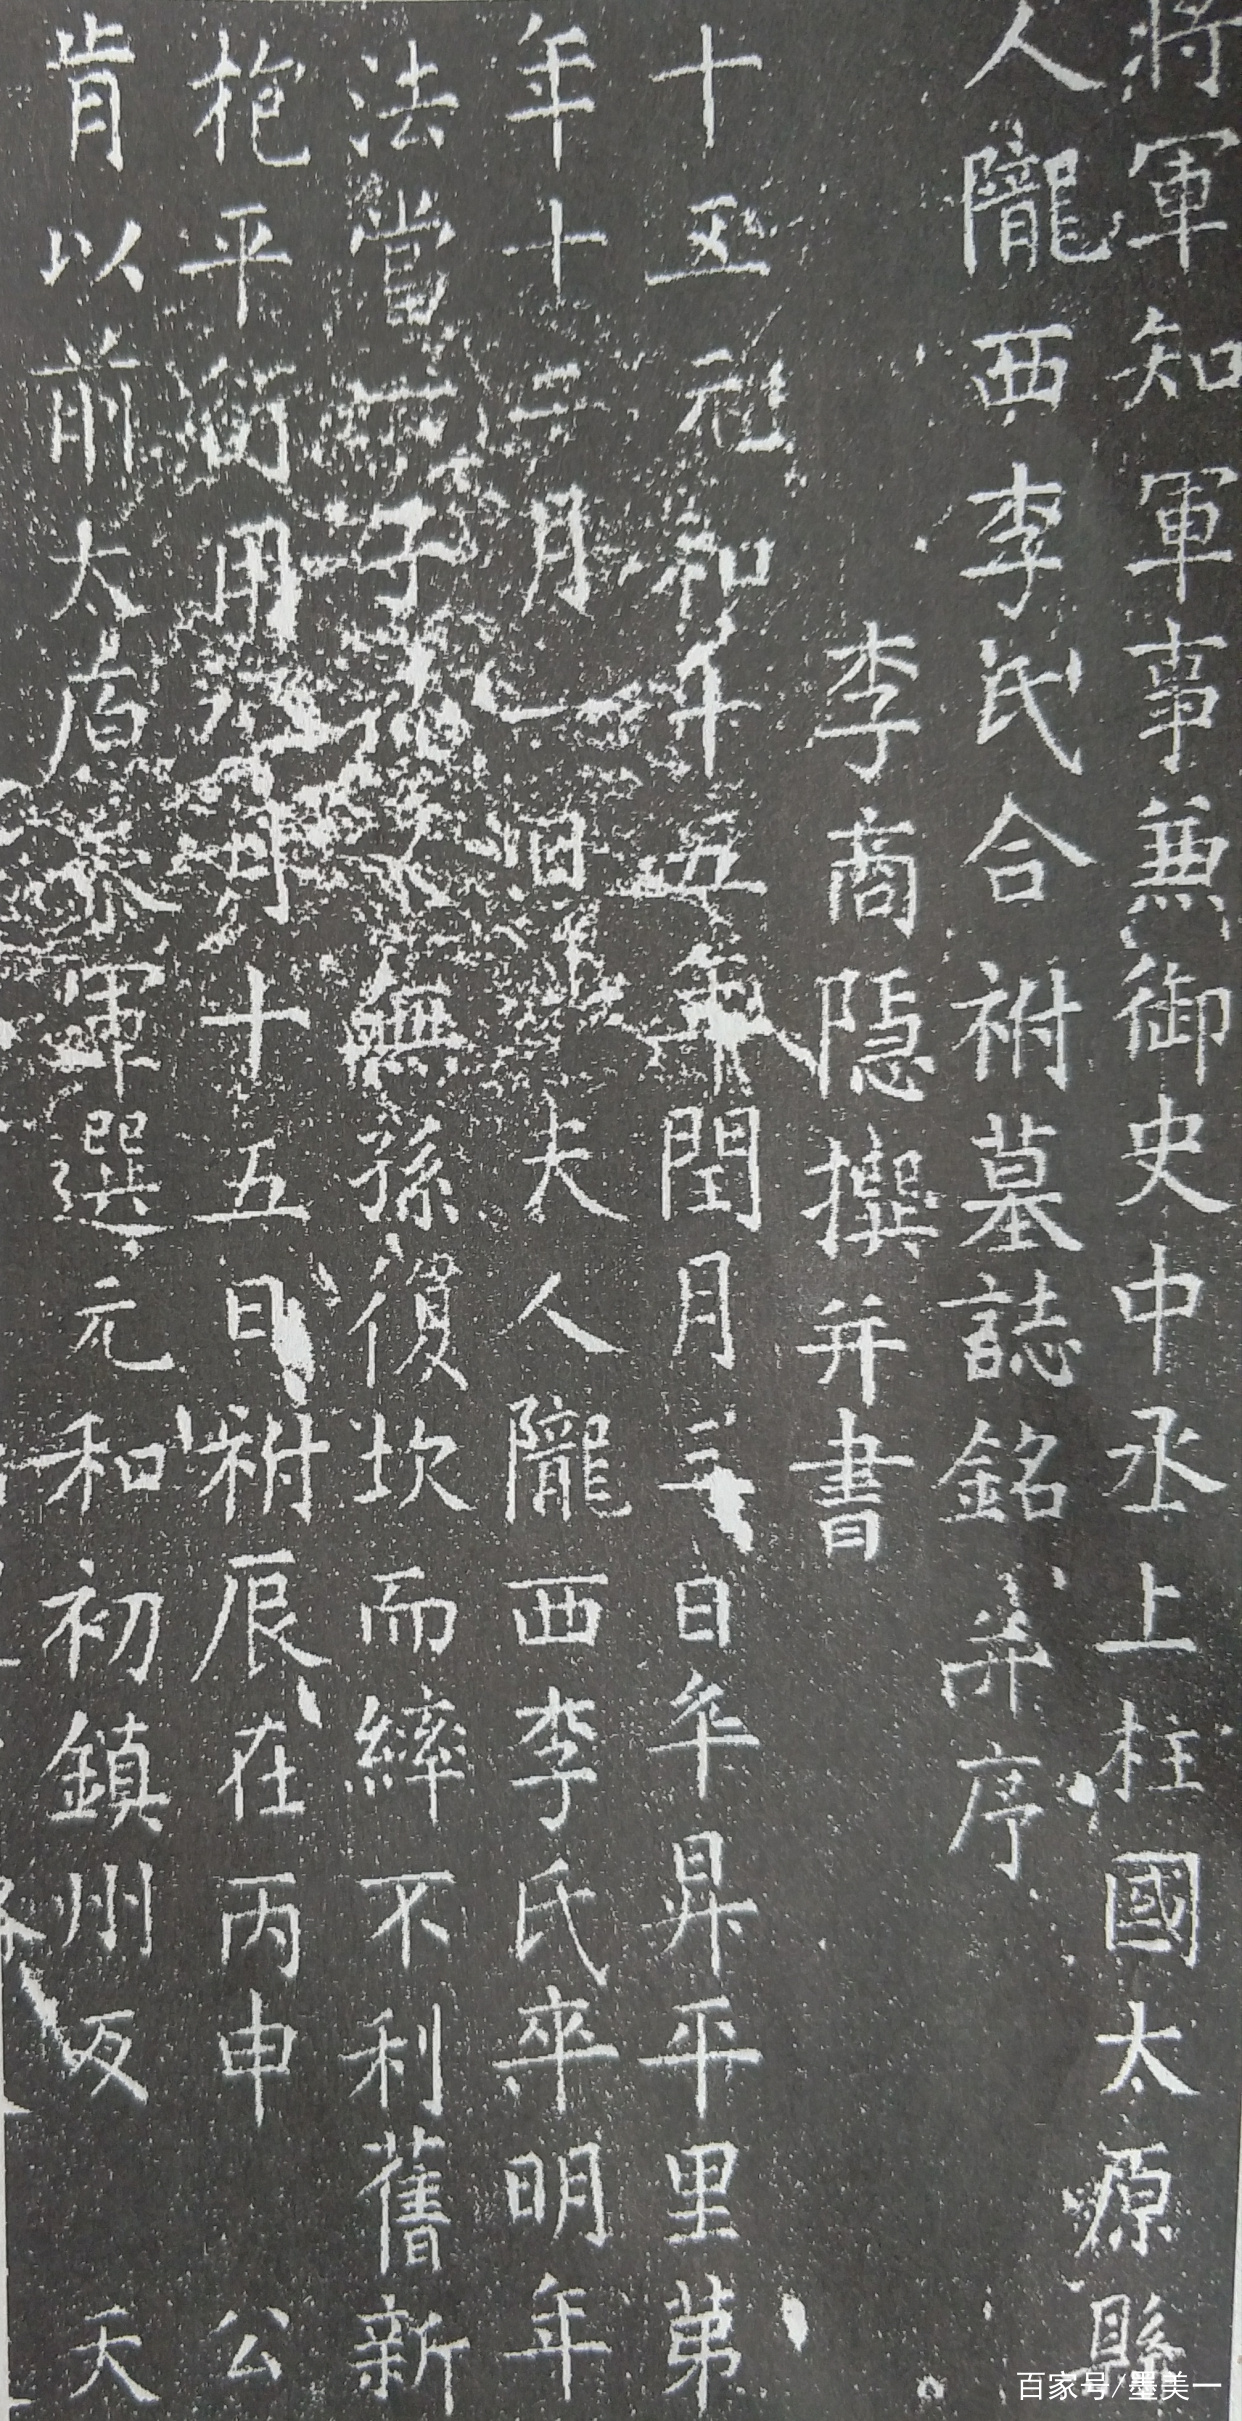 將軍知軍事兼御史中丞上柱國太原縣
人隴西李氏合祔墓誌銘并序
李商隱撰并書
十五元和年五年閏月三日卒昇平里苐
年十二月一日夫人隴西李氏卒明年
法當子無孫復坎而綷不利舊新
柩平衡用月十五日祔辰在丙申公
肯以前太原參軍選元和初鎮州反天
百家号/墨美一